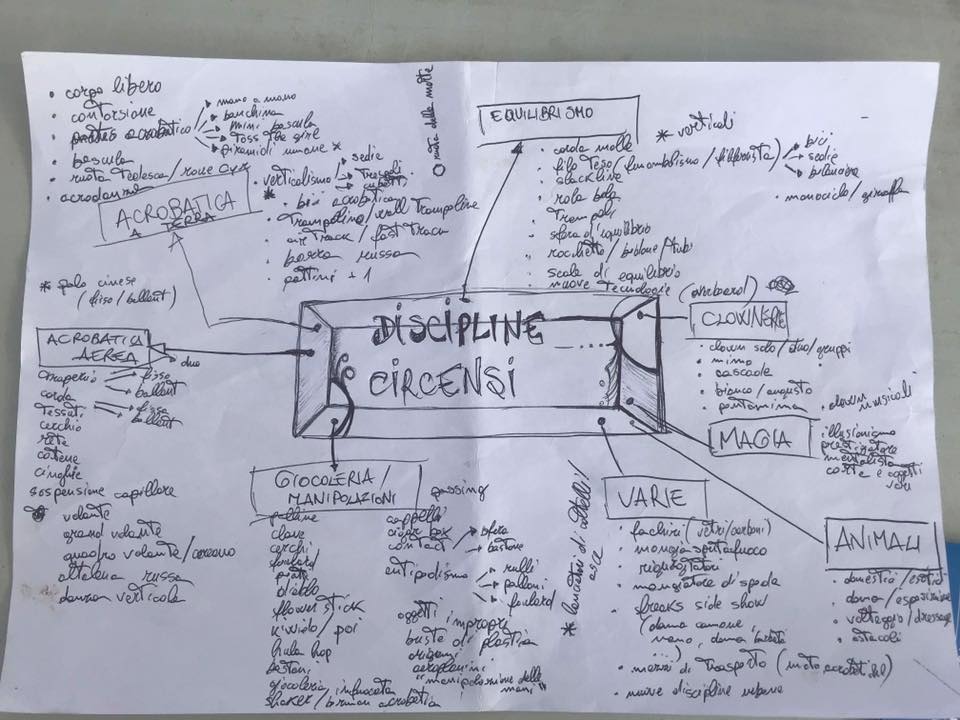 • corpo libero
• contorsione
• acrobatico
mano a mano
banchina
mini bascula
Toss the girl
piramidi umane *
• bascula
• ruota Tedesca / roue cyr
• acrodanza
ACROBATICA
A TERRA
• verticalismo
sedie
Trespoli
cubetti
*
• bici acrobatica
• Trampolino / wall Trampoline
• air Track / fast Track
• barra russa
• pattini + 1
O ruota della morte
EQUILIBRISMO
• corda molle
• filo Teso (funambolismo / filferrista)
bici
sedie
bilancino
• slackline
• rola bola
• Trampoli
• sfera d'equilibrio
• rocchetto / bidone / tubi
• scale di equilibrio
• nuove Tecnologie
* verticali
• monociclo / giraffa
* palo cinese
(fisso / ballant)
ACROBATICA
AEREA
duo
Trapezio
fisso
ballant
corda
Tessuti
fisso
ballant
cerchio
rete
catene
cinghie
sospensione capillare
volante
grand volante
quadro volante / coreano
altalena russa
danza verticale
DISCIPLINE
CIRCENSI
CLOWNERIE
• clown solo / duo / gruppi
• mimo
• cascate
• bianco / augusto
• pantomima
• clown musicali
MAGIA
illusionismo
prestigiatore
mentalista
carte e oggetti
vari
GIOCOLERIA /
MANIPOLAZIONI
passing
palline
clave
cerchi
foulard
piatti
diablo
flower stick
kiwido / poi
hula hop
bastoni
giocoleria infuocata
shaker / barman acrobatico
cappelli
cigar box
contact
sfera
bastone
antipodismo
rulli
palloni
foulard
oggetti impropri
buste di plastica
origami
aeroplanini
"manipolazione delle
mani"
* lanciatori di coltelli /
asce
VARIE
• fachiri (vetri / carboni)
• mangia sputafuoco
• rigurgitatori
• mangiatore di spade
• freaks side show
(donna cannone,
nano, donna barbuta
...)
• mezzi di Trasporto (moto acrobatiche)
• nuove discipline urbane
ANIMALI
• domestici / esotici
• doma / esposizione
• volteggio / dressage
• ostacoli